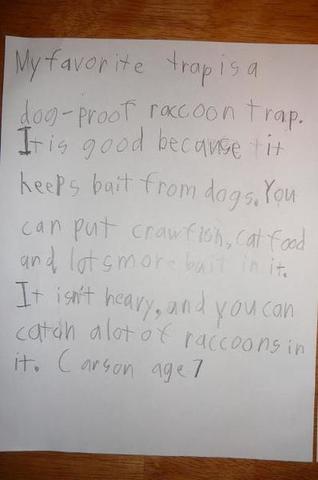 My favorite trap is a
dog-proof raccoon trap.
It is good because it
keeps bait from dogs. You
can put crawfish, cat food
and lots more bait in it.
It isn't heavy, and you can
catch alot of raccoons in
it. Carson age 7